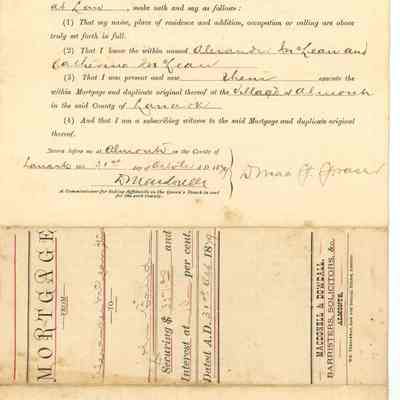 at Law , make oath and say as follows :
(1) That my name, place of residence and addition, occupation or calling are above
truly set forth in full.
(2) That I know the within named Alexander McLean and
Catherine McLean
(3) That I was present and saw them execute the
within Mortgage and duplicate original thereof at the Village of Almonte
in the said County of Lanark
(4) And that I am a subscribing witness to the said Mortgage and duplicate original
thereof.
Sworn before me at Almonte in the County of
Lanark this 31st day of October A.D. 1879
A Commissioner for taking Affidavits in the Queen's Bench in and
for the said County.
MORTGAGE
FROM
TO
Securing $ and
Interest at per cent.
Dated A.D. 31st Oct 1879
MACDONELL & DOWDALL,
BARRISTERS, SOLICITORS, &c.
ALMONTE.